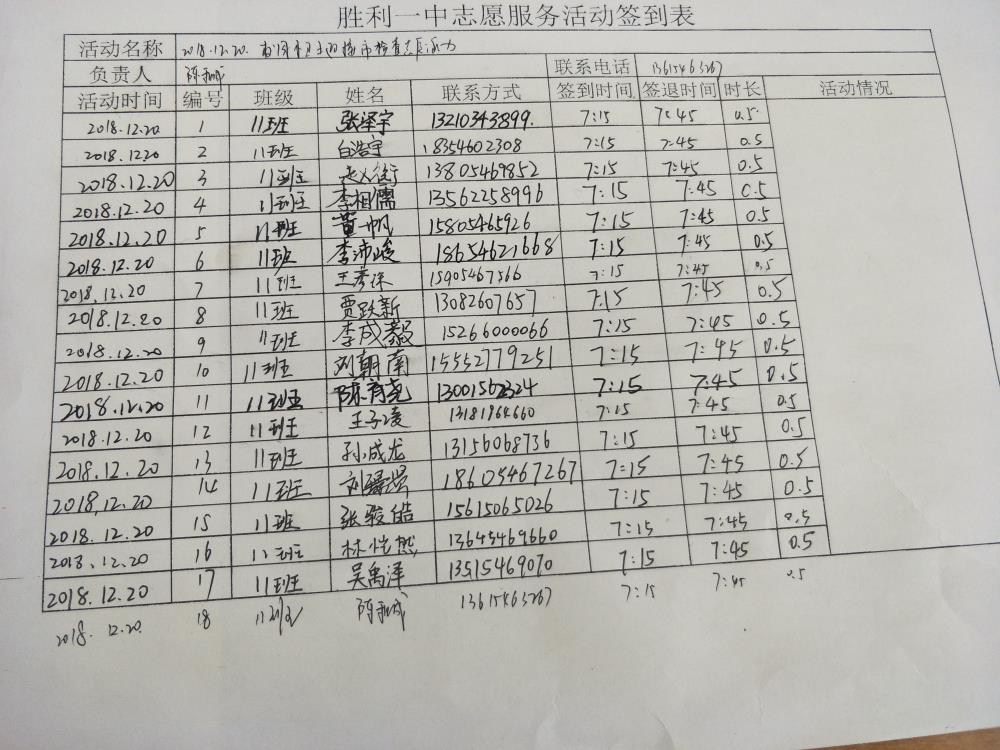 胜利一中志愿服务活动签到表
活动名称 2018.12.20.
负责人 联系电话 13615463267
活动时间 编号 班级 姓名 联系方式 签到时间 签退时间 时长 活动情况
2018.12.20 1 11班 张泽宇 13210343899. 7:15 7:45 0.5
2018.12.20 2 11班 白浩宇 18354602308 7:15 7:45 0.5
2018.12.20 3 11班 13805469852 7:15 7:45 0.5
2018.12.20 4 11班 李相儒 13562258996 7:15 7:45 0.5
2018.12.20 5 11班 黄一帆 15805465926 7:15 7:45 0.5
2018.12.20 6 11班 李沛峻 18654621668 7:15 7:45 0.5
2018.12.20 7 11班 王彦琛 15905467566 7:15 7:45 0.5
2018.12.20 8 11班 贾跃新 13082607657 7:15 7:45 0.5
2018.12.20 9 11班 李成毅 15266000066 7:15 7:45 0.5
2018.12.20 10 11班 刘朝南 15552779251 7:15 7:45 0.5
2018.12.20 11 11班 陈育尧 13001562324 7:15 7:45 0.5
2018.12.20 12 11班 王子凌 13181864660 7:15 7:45 0.5
2018.12.20 13 11班 孙成龙 13156068736 7:15 7:45 0.5
2018.12.20 14 11班 18605467267 7:15 7:45 0.5
2018.12.20 15 11班 张骏皓 15615065026 7:15 7:45 0.5
2018.12.20 16 11班 林恺然 13645469660 7:15 7:45 0.5
2018.12.20 17 11班 吴禹泽 13515469070 7:15 7:45 0.5
2018.12.20. 18 11班 13615463267 7:15 7:45 0.5